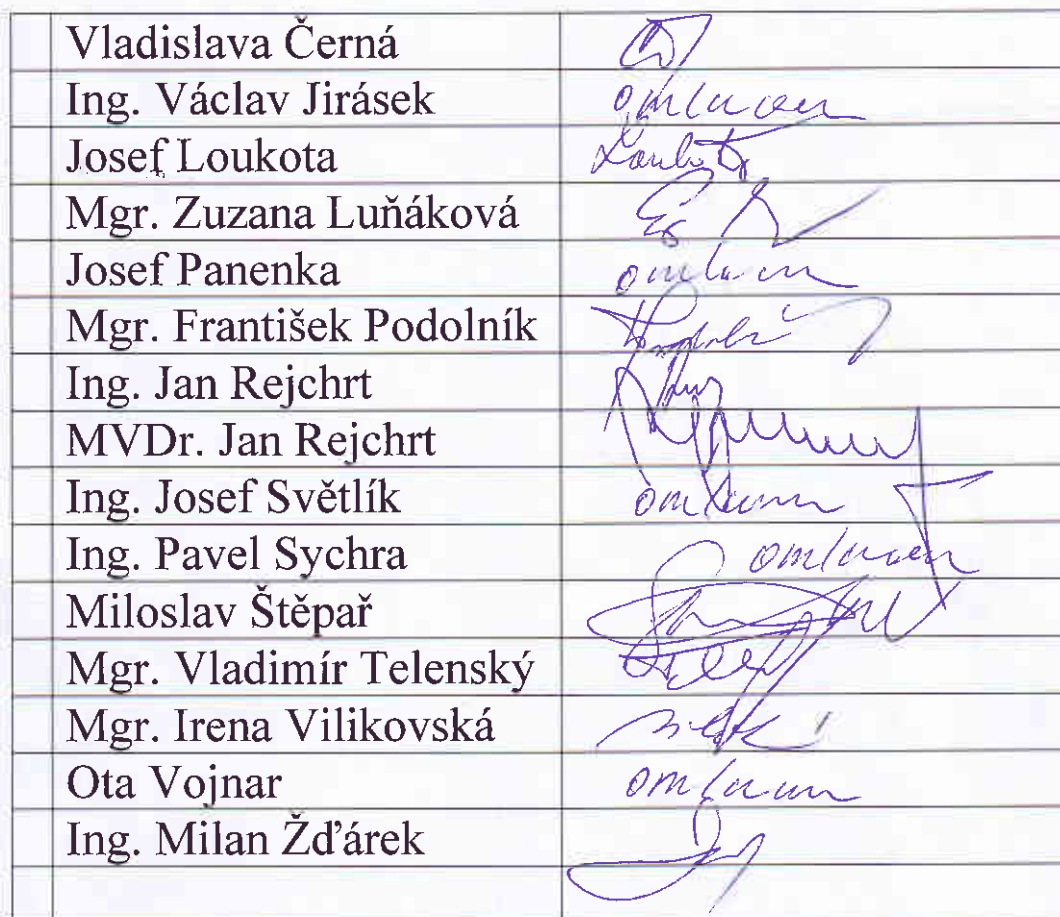 Vladislava Černá
Ing. Václav Jirásek omluven
Josef Loukota
Mgr. Zuzana Luňáková
Josef Panenka omluven
Mgr. František Podolník
Ing. Jan Rejchrt
MVDr. Jan Rejchrt
Ing. Josef Světlík omluven
Ing. Pavel Sychra omluven
Miloslav Štěpař
Mgr. Vladimír Telenský
Mgr. Irena Vilikovská
Ota Vojnar omluven
Ing. Milan Žďárek